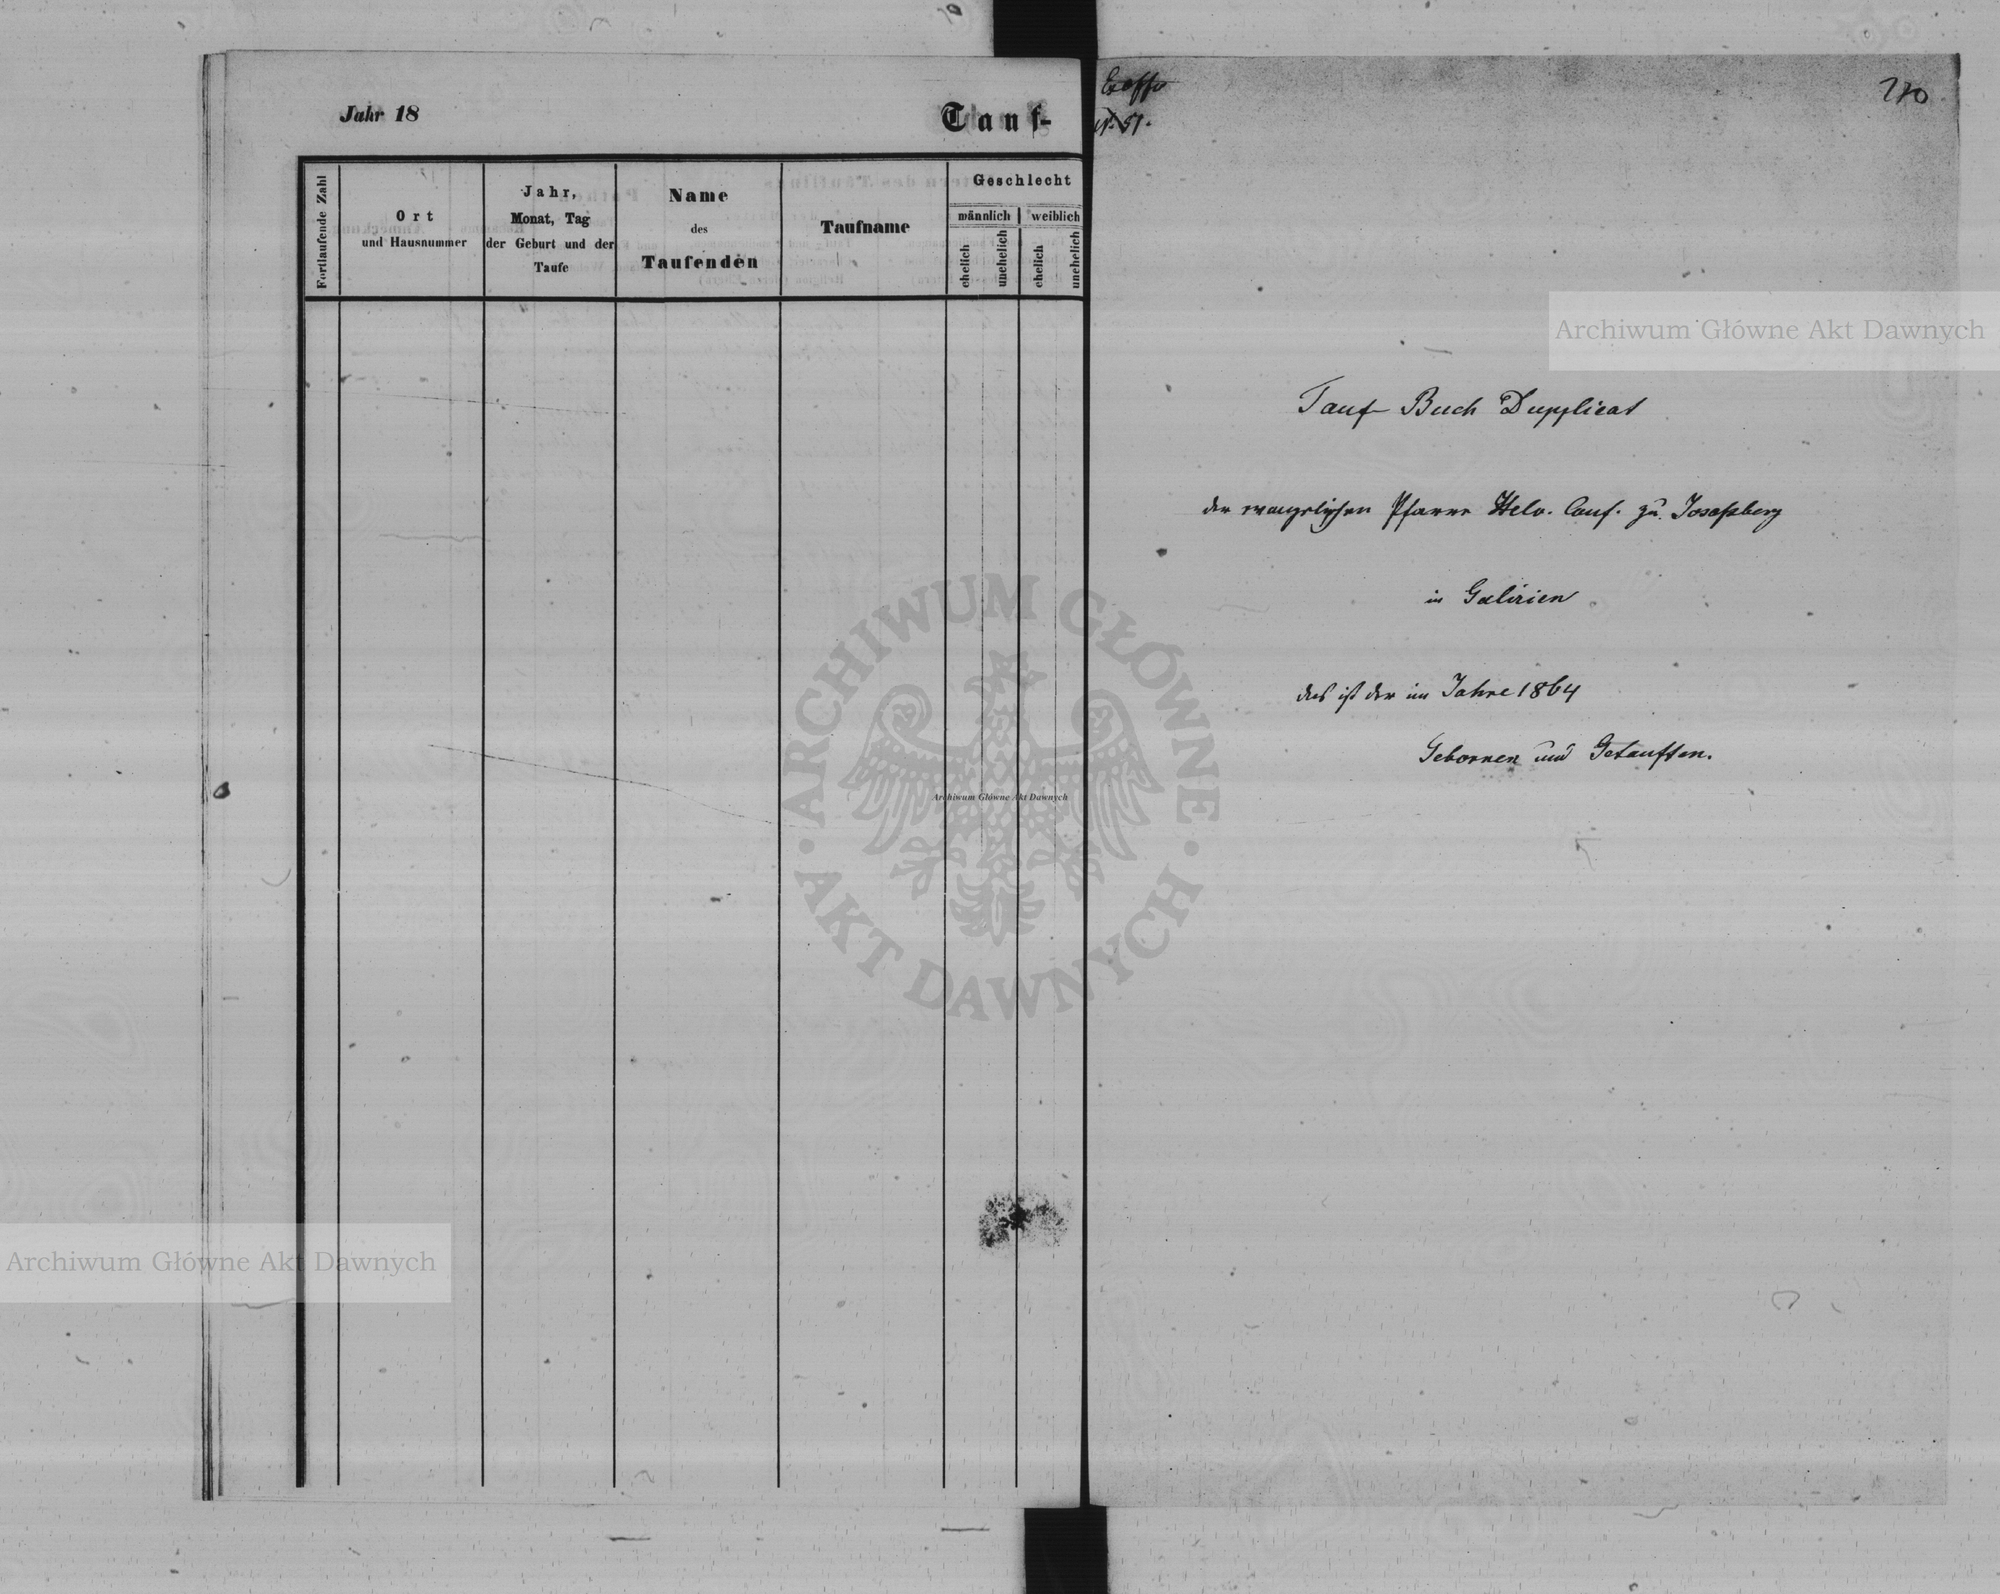 Jahr 18
Tauf-
Fortlaufende Zahl
Ort
und Hausnummer
Jahr,
Monat, Tag
der Geburt und der
Taufe
Name
des
Taufenden
Taufname
Geschlecht
männlich
weiblich
ehelich
unehelich
ehelich
unehelich
N. 51.
Archiwum Główne Akt Dawnych
Tauf-Buch Dupplicat
der evangelischen Pfarre Helv. Conf. zu Josefsberg
in Galizien
das ist der im Jahre 1864
Gebornen und Getauften.
ARCHIWUM GŁÓWNE
AKT DAWNYCH
Archiwum Główne Akt Dawnych
Archiwum Główne Akt Dawnych